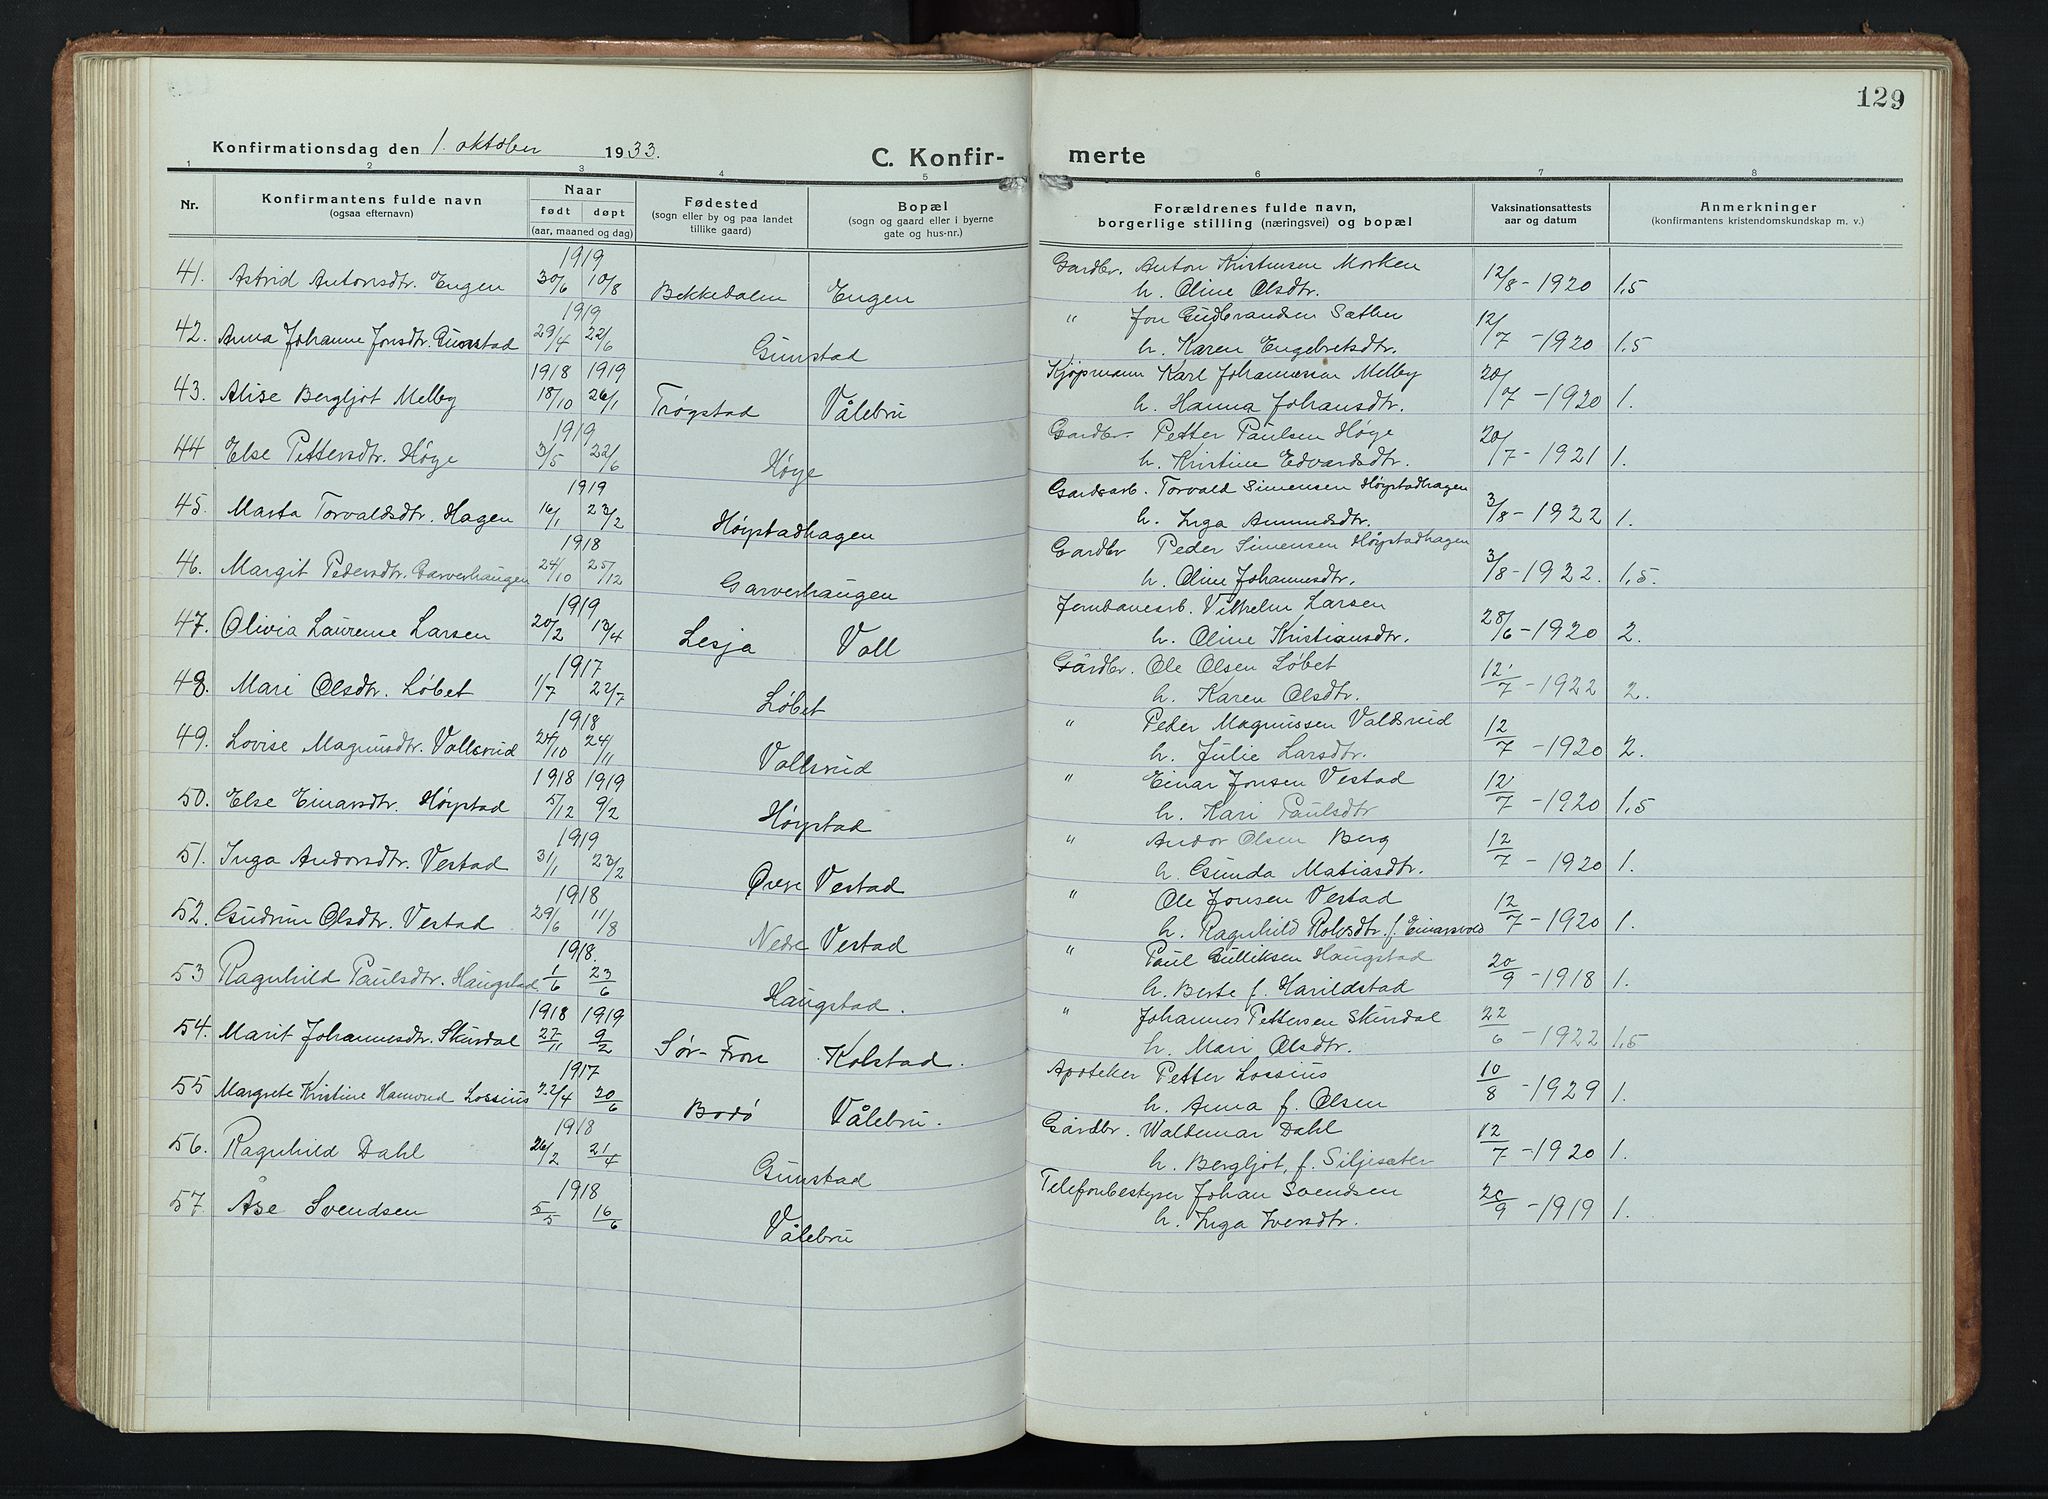 129
Konfirmationsdag den 1. oktober 1933.
C. Konfir- merte
1 2 3 4 5 6 7 8
Nr. Konfirmantens fulde navn (ogsaa efternavn) Naar født døpt (aar, maaned og dag) Fødested (sogn eller by og paa landet tillike gaard) Bopæl (sogn og gaard eller i byerne gate og hus-nr.) Forældrenes fulde navn, borgerlige stilling (næringsvei) og bopæl Vaksinationsattests aar og datum Anmerkninger (konfirmantens kristendomskundskap m. v.)
1919 Gardbr. Anton Kristensen Morken
41. Astrid Antonsdtr. Engen 30/6 10/8 Bekkedalen Engen h. Oline Olsdtr. 12/8-1920 1,5
1919 " Jon Gudbrandsen Sæther
42. Anna Johanne Jonsdtr. Gunstad 29/4 22/6 Gunstad h. Karen Engebretsdtr. 12/7-1920 1,5
1918 1919 Kjøpmann Karl Johannessen Melby
43. Alise Bergljot Melby 18/10 26/1 Trøgstad Vålebru h. Hanna Johansdtr. 20/7-1920 1.
1919 Gardbr. Petter Paulsen Høge
44 Else Pettersdtr. Høge 3/5 22/6 Høge h. Kristine Edvardsdtr. 20/7-1921 1.
1919 Gardsarb. Torvald Simensen Høystadhagen
45. Marta Torvaldsdtr. Hagen 16/1 23/2 Høystadhagen h. Inga Amundsdtr. 3/8-1922 1.
1918 Gardbr Peder Simensen Høystadhagen
46. Margit Pedersdtr. Garverhaugen 24/10 25/12 Garverhaugen h. Oline Johannesdtr. 3/8-1922. 1,5.
1919 Jernbanearb. Vilhelm Larsen
47. Olivia Laurense Larsen 20/2 13/4 Lesja Voll h. Oline Kristiansdtr. 28/6-1920 2.
1917 Gårdbr. Ole Olsen Løbet
48. Mari Olsdtr. Løbet 1/7 22/7 Løbet h. Karen Olsdtr. 12/7-1922 2.
1918 " Peder Magnussen Valdsrud
49. Lovise Magnusdtr. Vollsrud 24/10 24/11 Vollsrud h. Julie Larsdtr. 12/7-1920 2.
1918 1919 " Einar Jonsen Vestad
50. Else Einarsdtr. Høystad 5/12 9/2 Høystad h. Kari Paulsdtr 12/7-1920 1,5
1919 " Andor Olsen Berg
51. Inga Andorsdtr. Vestad 31/1 23/2 Øvre Vestad h. Gunda Matiasdtr. 12/7-1920 1.
1918 " Ole Jonsen Vestad
52. Gudrun Olsdtr. Vestad 29/6 11/8 Nedre Vestad h. Ragnhild Rolvsdtr. f. Einarsvold 12/7-1920 1.
1918. " Paul Gulliksen Haugstad
53 Ragnhild Paulsdtr. Haugstad. 1/6 23/6 Haugstad. h. Berte f. Harildstad 20/9-1918 1.
1918 1919 " Johannes Pettersen Skurdal
54. Marit Johannesdtr. Skurdal 27/11 9/2 Sør-Fron Kolstad. h. Mari Olsdtr. 22/6-1922 1,5
1917 Apoteker Petter Lossius
55 Margrete Kristine Lossius 22/4 20/6 Bodø Vålebru. h. Anna f. Olsen 10/8-1929 1.
1918 Gårdbr. Waldemar Dahl
56. Ragnhild Dahl 26/2 21/4 Gunstad h. Bergljot, f. Siljesæter 12/7-1920 1.
1918 Telefonbestyrer Johan Svendsen
57. Åse Svendsen 5/5 16/6 Vålebru h. Inga Iversdtr. 20/9-1919 1.